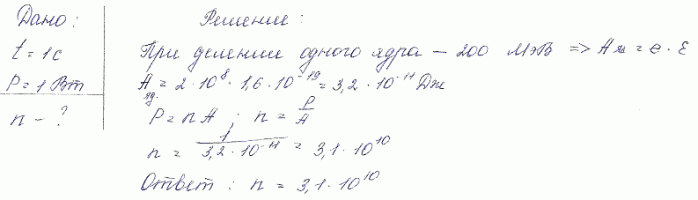 Дано:
t = 1 с
P = 1 Вт
n - ?
Решение:
При деление одного ядра – 200 МэВ => Aя = e · ε
Aяд. = 2 · 10⁸ · 1,6 · 10⁻¹⁹ = 3,2 · 10⁻¹¹ Дж
P = nA ; n = P/A
n = 1/3,2 · 10⁻¹¹ = 3,1 · 10¹⁰
Ответ : n = 3,1 · 10¹⁰